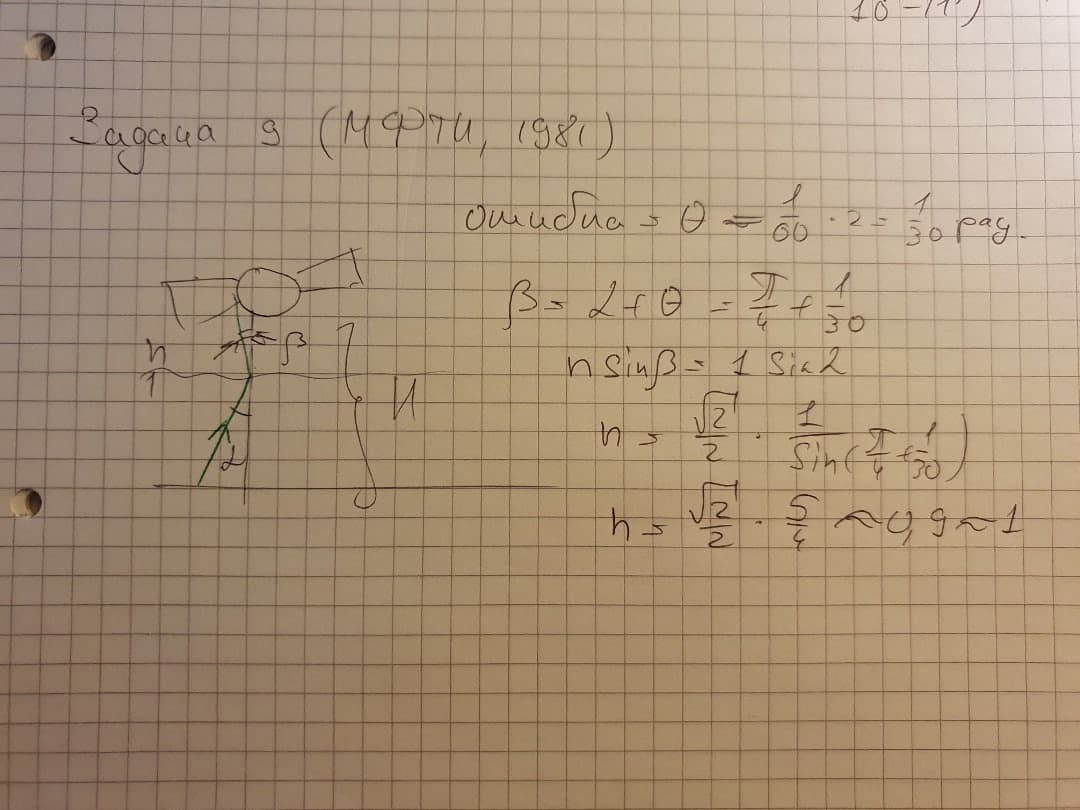 10-11)
Задача 9 (МФТИ, 1981)
ошибка = θ = 1/60 · 2 = 1/30 рад.
β = α + θ = π/4 + 1/30
n sinβ = 1 sin α
n = √2/2 · 1/sin(π/4 + 1/30)
n = √2/2 · 5/4 ≈ 0,9 ≈ 1
n
1
β
α
H